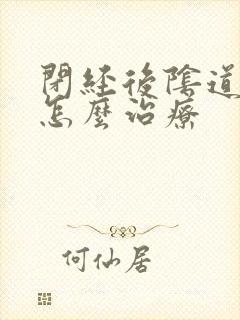 閉經後陰道
怎麼治療
何仙居